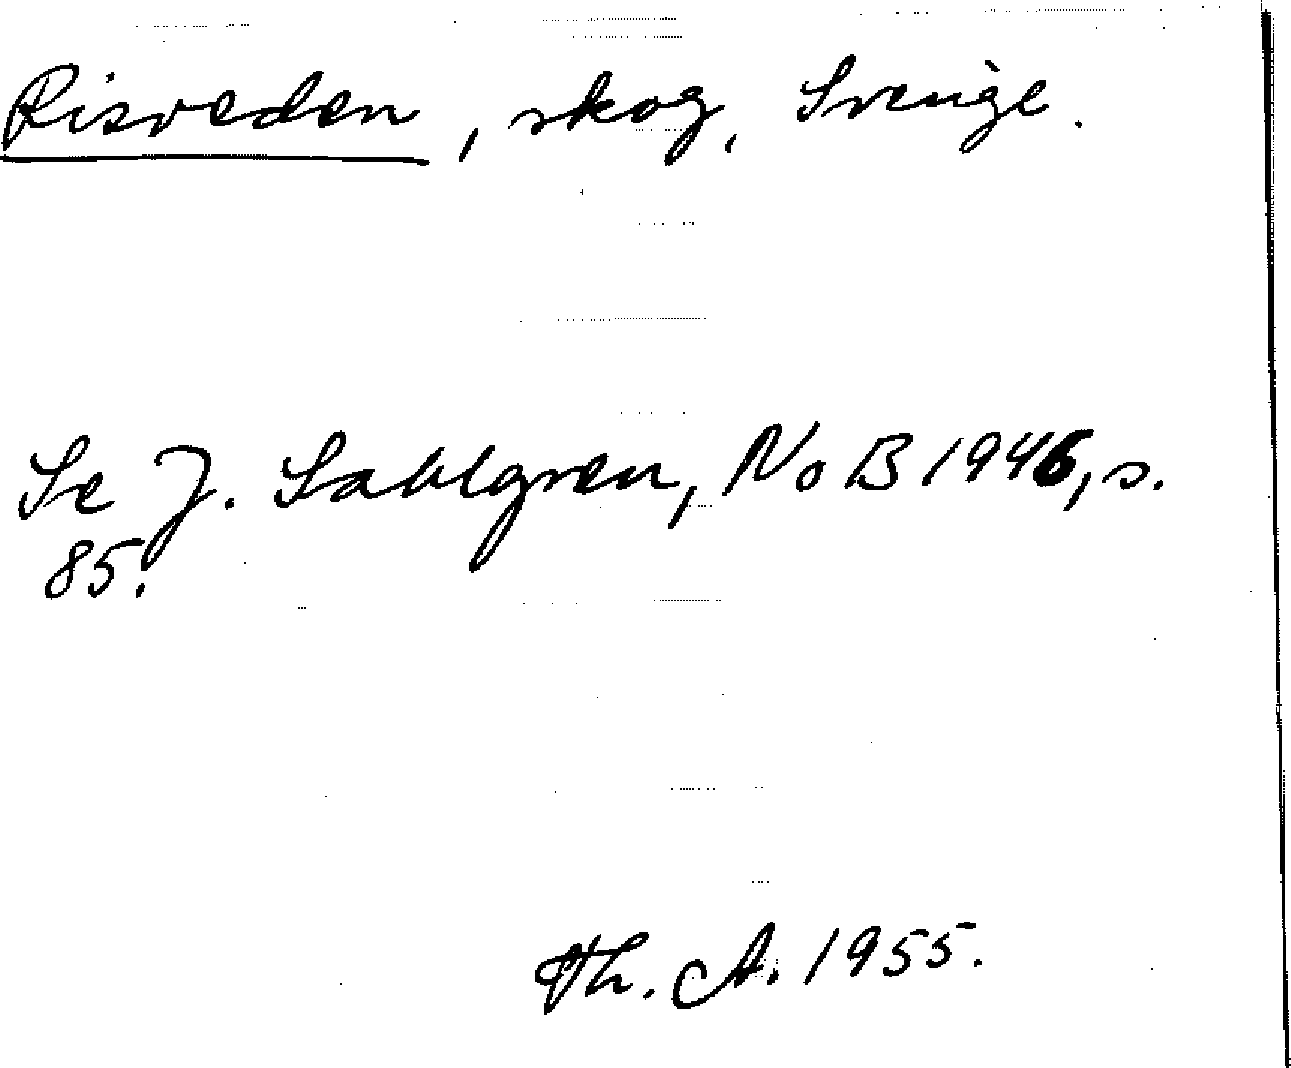 Risveden, skog, Sverige.
Se J. Sahlgren, NoB 1946, s.
85.
Th. A. 1955.